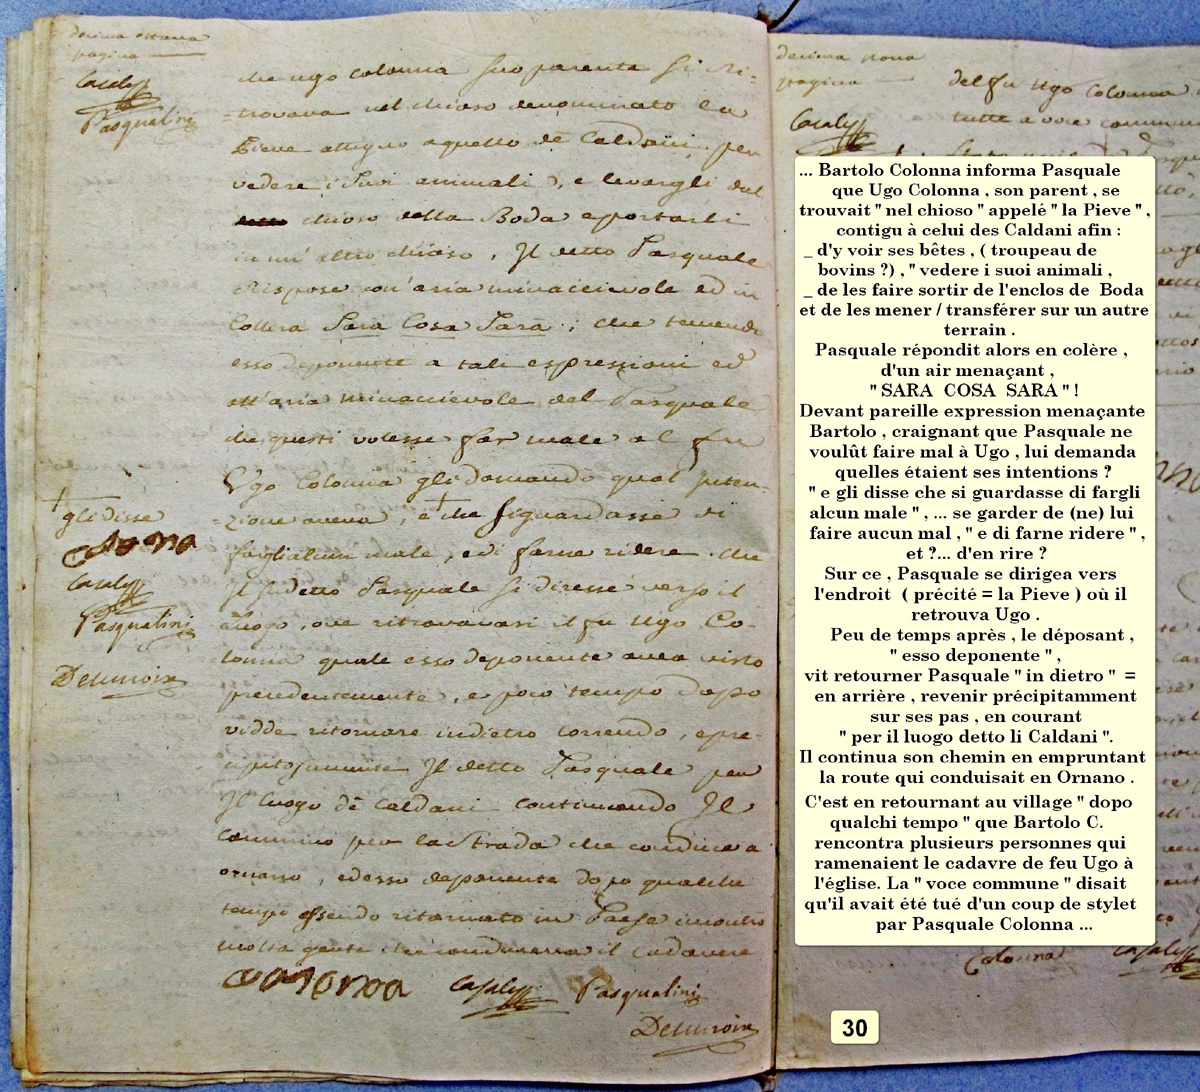 decima ottava
pagina
Casalj
Pasqualini
che ugo colonna suo parente si ri-
=trovava nel chioso denominato la
Pieve attiguo a quello de Caldani, per
vedere i suoi animali, e levargli dal
chioso della Boda e portarli
in un' altro chioso, Il detto Pasquale
rispose con' aria minaccievole ed in
Collera Sarà Cosa Sarà; che temendo
esso deponente a tali espressioni ed
all' aria minaccievole del Pasquale
che questi volesse far male al fu
Ugo Colonna gli domandò qual inten-
=zione aveva, e + che si guardasse di
fargli alcun male, e di farne ridere. che
Il sudetto Pasquale si diresse verso il
Luogo, ove ritrovavasi il fu Ugo Co-
lonna quale esso deponente avea visto
precedentemente, e poco tempo dopo
vidde ritornare indietro correndo, e pre-
cipitosamente Il detto Pasquale per
Il luogo de Caldani continuando Il
cammino per la Strada che conduce a
ornano, ed esso deponente dopo qualche
tempo essendo ritornato in Paese incontrò
molta gente che conduceva il Cadavere
+
gli disse
Colonna
Casalj
Pasqualini
Colonna
Casalj
Pasqualini
decima nona
pagina
del fu Ugo Colonna
Casalj
tutte a voce
... Bartolo Colonna informa Pasquale
que Ugo Colonna , son parent , se
trouvait " nel chioso " appelé " la Pieve " ,
contigu à celui des Caldani afin :
_ d'y voir ses bêtes , ( troupeau de
bovins ?) , " vedere i suoi animali ,
_ de les faire sortir de l'enclos de Boda
et de les mener / transférer sur un autre
terrain .
Pasquale répondit alors en colère ,
d'un air menaçant ,
" SARA COSA SARA " !
Devant pareille expression menaçante
Bartolo , craignant que Pasquale ne
voulût faire mal à Ugo , lui demanda
quelles étaient ses intentions ?
" e gli disse che si guardasse di fargli
alcun male " , ... se garder de (ne) lui
faire aucun mal , " e di farne ridere " ,
et ?... d'en rire ?
Sur ce , Pasquale se dirigea vers
l'endroit ( précité = la Pieve ) où il
retrouva Ugo .
Peu de temps après , le déposant ,
" esso deponente " ,
vit retourner Pasquale " in dietro " =
en arrière , revenir précipitamment
sur ses pas , en courant
" per il luogo detto li Caldani ".
Il continua son chemin en empruntant
la route qui conduisait en Ornano .
C'est en retournant au village " dopo
qualchi tempo " que Bartolo C.
rencontra plusieurs personnes qui
ramenaient le cadavre de feu Ugo à
l'église. La " voce commune " disait
qu'il avait été tué d'un coup de stylet
par Pasquale Colonna ...
Colonna
30